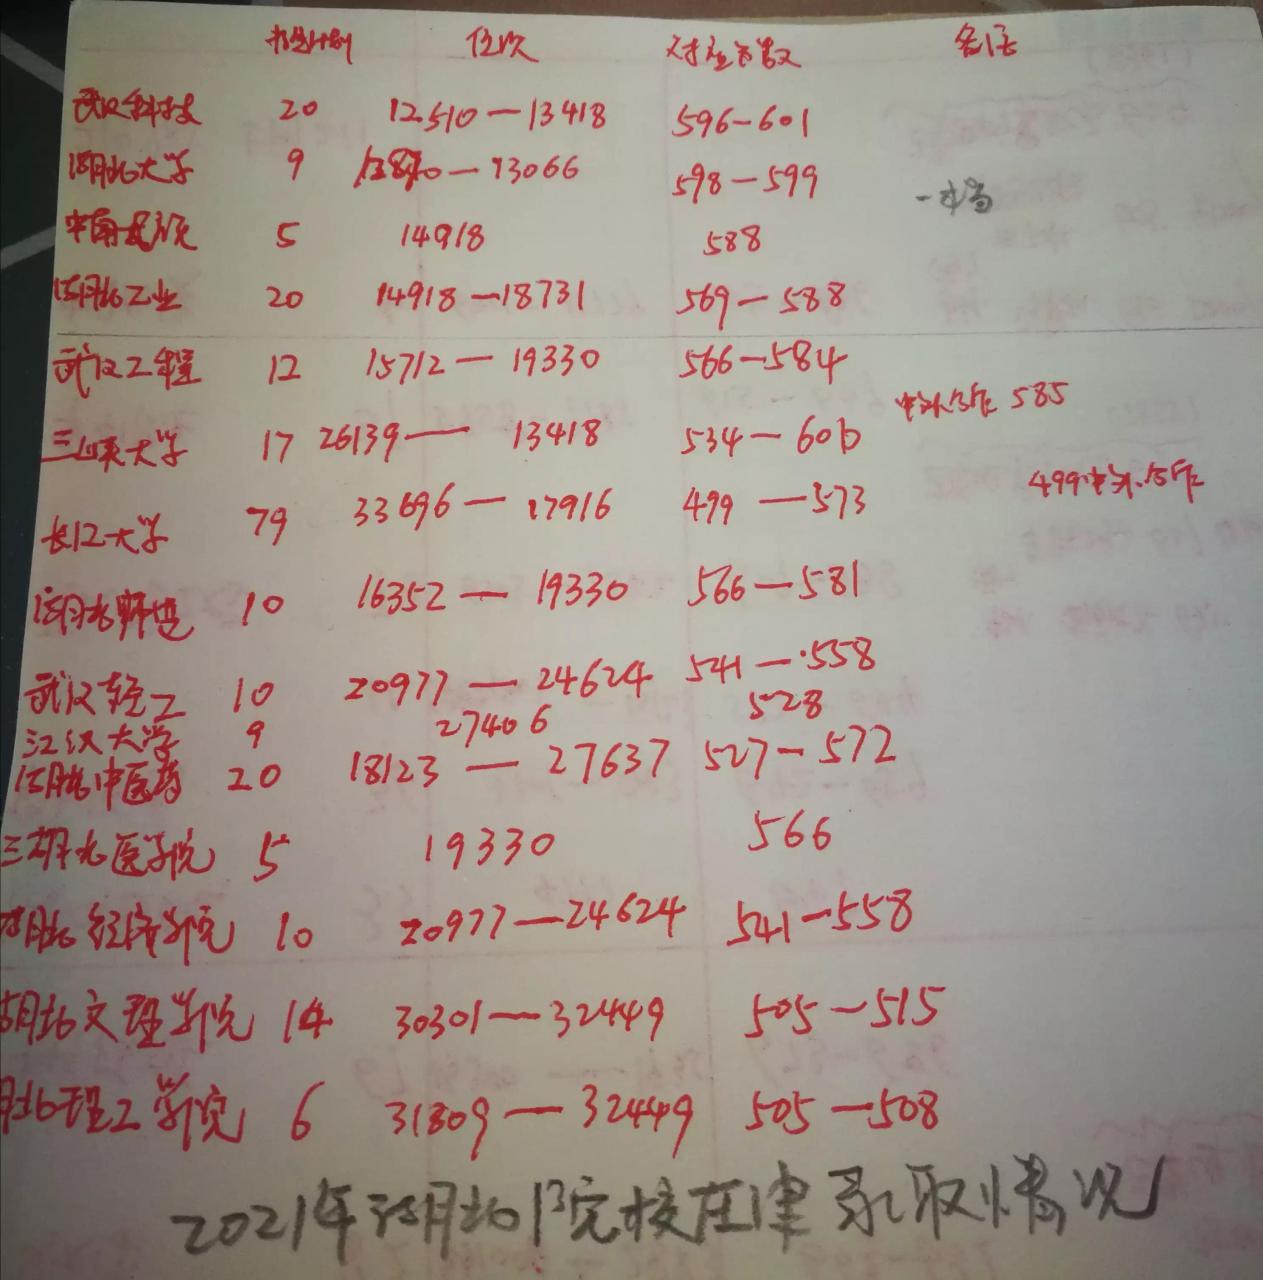 招生计划 位次 对应分数 备注
武汉科技 20 12510—13418 596-601
湖北大学 9 12870—13066 598-599
一本高
中南民族 5 14918 588
湖北工业 20 14918-18731 569-588
武汉工程 12 15712—19330 566-584
中外合作 585
三峡大学 17 26139—13418 534-600
499中外合作
长江大学 79 33696—17916 499—573
湖北师范 10 16352—19330 566—581
武汉轻工 10 20977—24624 541—558
江汉大学 9 27406 528
湖北中医药 20 18123—27637 527-572
湖北医学院 5 19330 566
湖北经济学院 10 20977—24624 541-558
湖北文理学院 14 30301—32449 505-515
湖北理工学院 6 31809—32449 505—508
2021年湖北院校在津录取情况